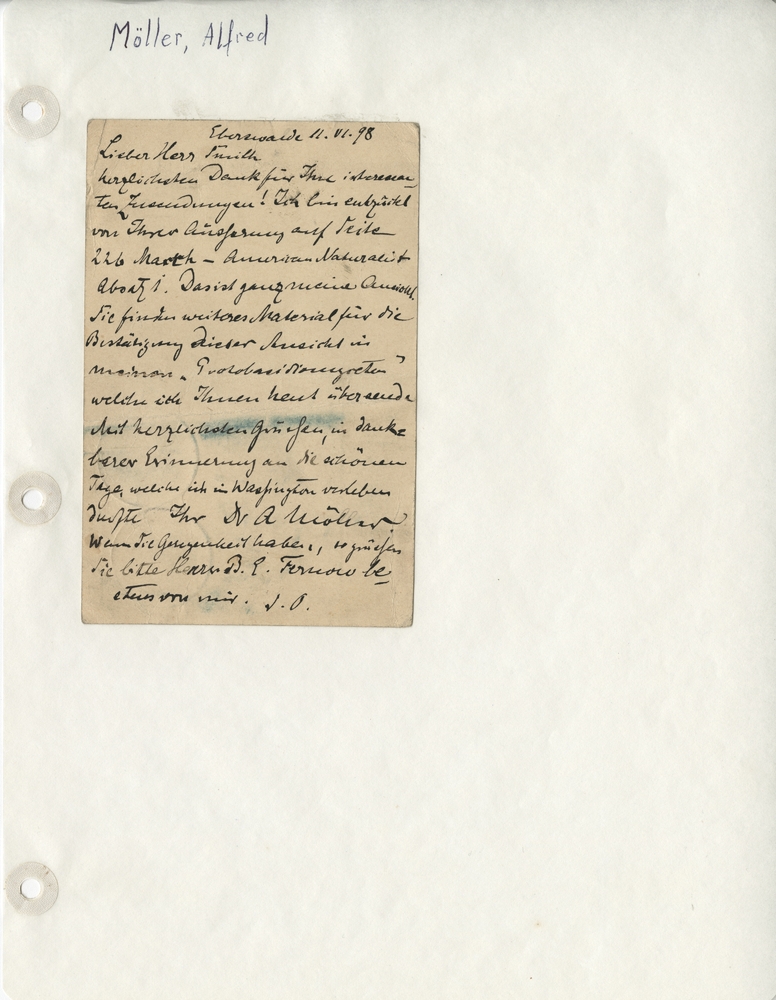 Möller, Alfred
Eberswalde 11. VI. 98
Lieber Herr Smith
herzlichsten Dank für Ihre interessan-
ten Zusendungen! Ich bin entzückt
von Ihrer Äusserung auf Seite
226 March – American Naturalist
Absatz 1. Das ist ganz meine Ansicht.
Sie finden weiteres Material für die
Bestätigung dieser Ansicht in
meinen „Protobasidiomyceten"
welche ich Ihnen heut übersende
Mit herzlichsten Grüßen, in dank=
barer Erinnerung an die schönen
Tage, welche ich in Washington verleben
durfte Ihr Dr A Möller.
Wenn Sie Gelegenheit haben, so grüßen
Sie bitte Herrn B. E. Fernow be
stens von mir.